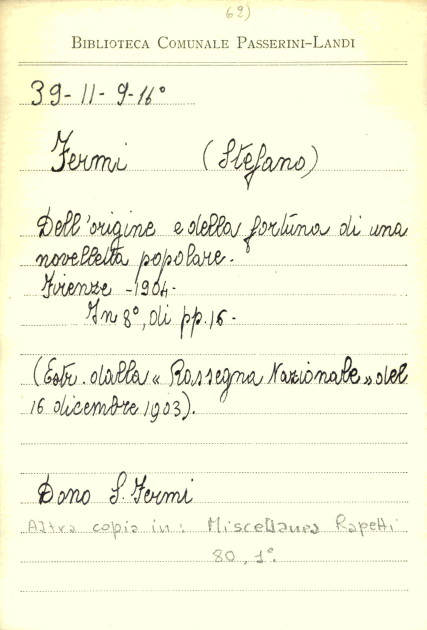 62)
BIBLIOTECA COMUNALE PASSERINI-LANDI
39-11-9-16°
Fermi (Stefano)
Dell'origine e della fortuna di una
novelletta popolare.
Firenze - 1904.
In 8°, di pp. 16.
(Estr. dalla « Rassegna Nazionale » del
16 dicembre 1903).
Dono S. Fermi
Altra copia in: Miscellanea Rapetti
80, 1°.